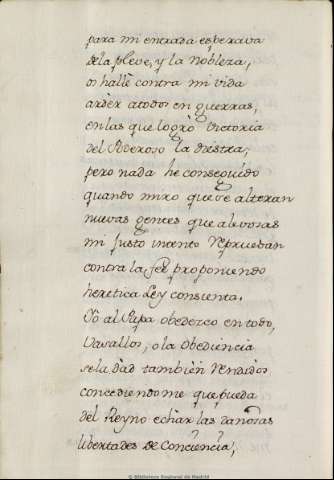 para mi entrada esperava
dela pleve, y la nobleza,
os hallè contra mi vida
arder atodos en guerras,
enlas que logrò victoria
del Poderoso la diestra;
pero nada he conseguido
quando miro que se alteran
nuevas gentes que alevosas
mi justo intento reprueban
contra la feè proponiendo
heretica Ley consienta.
Yo al Papa obedezco en todo,
Vasallos, ò la obediencia
sela dad tambien rendidos
concediendome que pueda
del Reyno echar las dañosas
libertades de Conciencia;
© Biblioteca Regional de Madrid